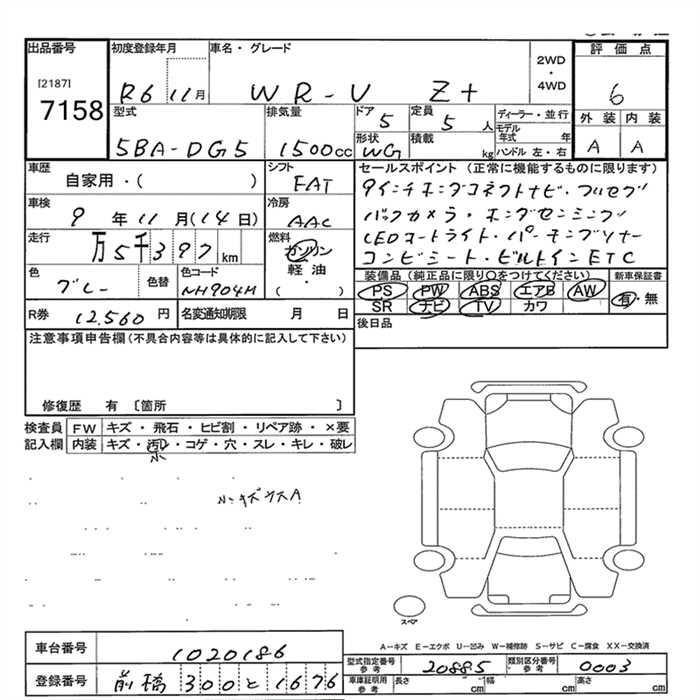 出品番号
[2187]
7158
初度登録年月
R6 11月
車名・グレード
WR-V Z+
2WD
・
4WD
評価点
6
型式
5BA-DG5
排気量
1500cc
ドア
5
定員
5人
形状
WG
積載
kg
ディーラー・並行
モデル年式 年
ハンドル 左・右
外装 内装
A A
車歴
自家用・( )
シフト
FAT
冷房
AAC
車検
9年11月(14日)
走行
万5千397km
燃料
ガソリン
軽油
・
( )
色
グレー
色替
色コード
NH904M
R券 12,560円
名変通知期限 月 日
セールスポイント (正常に機能するものに限ります)
9インチホンダコネクトナビ・フルセグ
バックカメラ・ホンダセンシング
LEDオートライト・パーキングソナー
コンビシート・ビルトインETC
装備品(純正品に限り○をつけてください)
新車保証書
PS PW ABS エアB AW
SR ナビ TV カワ
有・無
後日品
注意事項申告欄(不具合内容等は具体的に記入して下さい)
修復歴 有 〔箇所 〕
検査員記入欄
FW キズ・飛石・ヒビ割・リペア跡・×要
内装 キズ・汚れ・コゲ・穴・スレ・キレ・破レ
小
小キズウスA
スペア
A-キズ E-エクボ U-凹み W-補修跡 S-サビ C-腐食 XX-交換済
車台番号 1020186
登録番号 前橋 300 と 1676
型式指定番号 参考 20885
類別区分番号 参考 0003
車庫証明用 参考
長さ cm
幅 cm
高さ cm